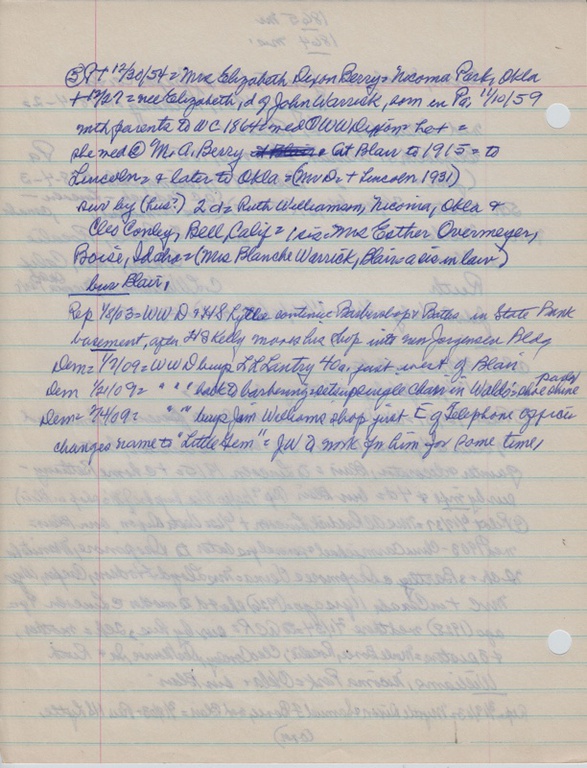 ③ Pt 12/30/54 = Mrs Elizabeth Dixon Berry = Nicoma Park, Okla
+ 12/27 = nee Elizabeth, d of John Warrick, born in Pa, 11/10/59
with parents to WC 1864 = med ① WW Dixon
she med ② M.A. Berry = at Blair to 1915 = to
Lincoln = & later to Okla = (Mr D. + Lincoln 1931)
surv by (hus?) 2 d = Ruth Williamson, Nicoma, Okla &
Cleo Conley, Bell, Calif = 1 sis = Mrs Esther Overmeyer,
Boise, Idaho = (Mrs Blanche Warrick, Blair = a sis in law)
bur Blair,
Rep 1/8/03 = WW D & HS Lyttle continue Barbershop & Baths in State Bank
basement, after HS Kelly moves his shop into new Jorgensen Bldg
Dem = 1/7/09 = WW D buys LR Lantry 40a, just west of Blair
Dem 1/21/09 = " " " back to barbering = sets up single chair in Waldo's shoe shine parlor
Dem = 2/4/09 = " " " buys Jim Williams shop just E of Telephone office =
changes name to "Little Gem" = JW D. work for him for some time,